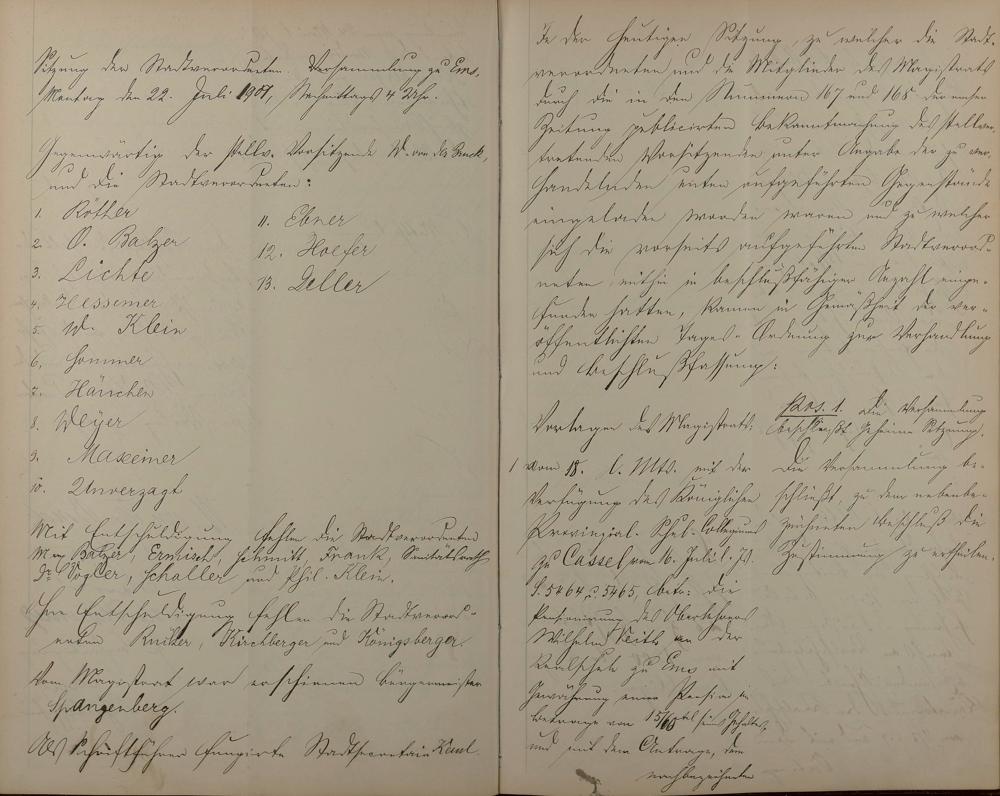 Sitzung der Stadtverordneten-Versammlung zu Ems,
Montag den 22. Juli 1901, Nachmittags 4 Uhr.
Gegenwärtig der stellv. Vorsitzende W. von der
und die Stadtverordneten:
1. Röther
2. O. Balzer
3. Lichte
4. Hessemer
5. W. Klein
6. Sommer
7. Hänchen
8. Weyer
9. Maxeiner
10. Unverzagt
11. Ebner
12. Hoefer
13. Deller
Mit Entschuldigung fehlen die Stadtverordneten
Balzer, Ermisch, Schmitt, Frank, Sanitätsrath
Dr. Vogler, Schaller und Phil. Klein.
Ohne Entschuldigung fehlen die Stadtverord-
neten Kirchberger und Königsberger.
Vom Magistrat war erschienen Bürgermeister
Spangenberg.
Als Schriftführer fungirte Stadtsecretair Kaul.
In der heutigen Sitzung, zu welcher die Stadt-
verordneten und die Mitglieder des Magistrats
durch die in den Nummern 167 und 168 der Emser
Zeitung publicirten Bekanntmachung des stellver-
tretenden Vorsitzenden unter Angabe der zu ver-
handelnden unten aufgeführten Gegenstände
eingeladen worden waren und zu welcher
sich die vorseits aufgeführten Stadtverord-
neten mithin in beschlußfähiger Anzahl einge-
funden hatten, kamen in Gemäßheit der ver-
öffentlichten Tages-Ordnung zur Verhandlung
und Beschlußfassung:
Vorlagen des Magistrats:
1 vom 18. l. Mts. mit der
Verfügung des Königlichen
Provinzial-Schul-Collegiums
zu Cassel vom 16. Juli l. Js.
S. 5464 u. 5465, betr: die
Pensionirung des Oberlehrers
Wilhelm Veith an der
Realschule zu Ems mit
Gewährung einer Pension im
Betrage von 15/60tel seines Gehaltes,
und mit dem Antrage, dem
nachbezeichneten
Pos. 1. Die Versammlung
beschließt geheime Sitzung.
Die Versammlung be-
schließt, zu dem nebenbe-
zeichneten Beschluß die
Zustimmung zu ertheilen.